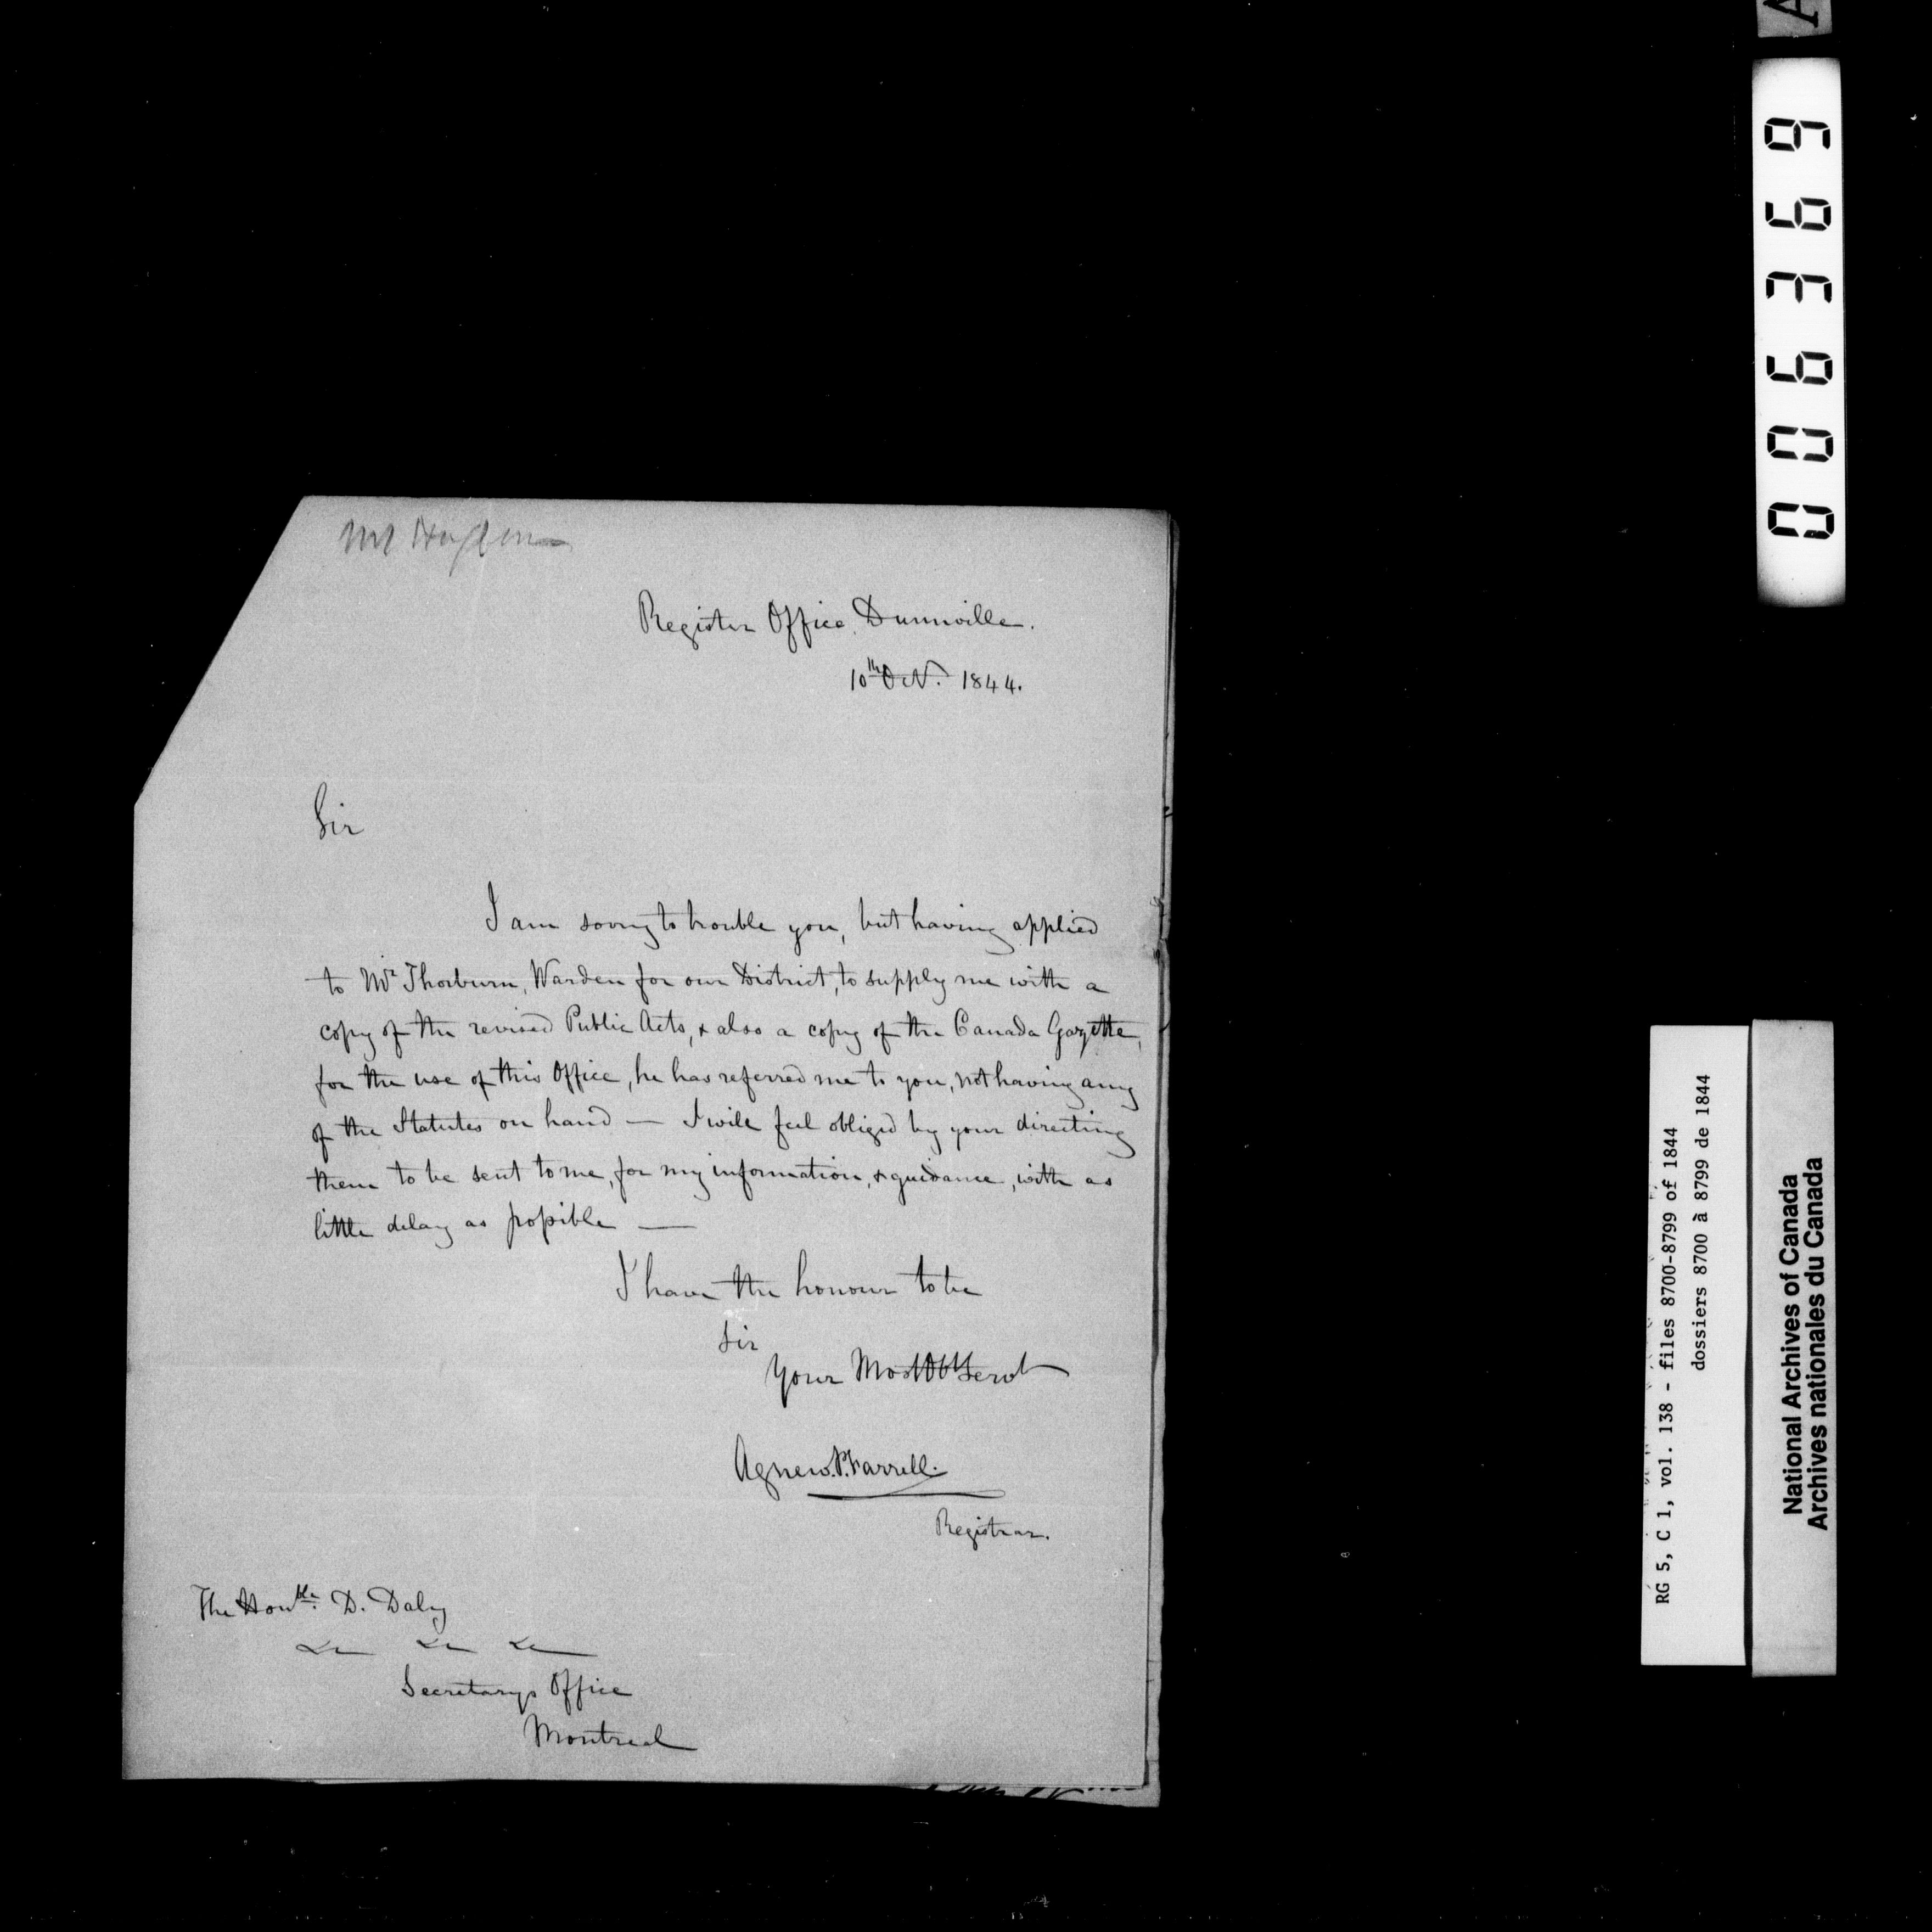 Mr
Register Office, Dunnville.
10th Oct. 1844.
Sir
I am sorry to trouble you, but having applied
to Mr Thorburn, Warden for our District, to supply me with a
copy of the revised Public Acts, & also a copy of the Canada Gazette,
for the use of this Office, he has referred me to you, not having any
of the Statutes on hand — I will feel obliged by your directing
them to be sent to me, for my information, & guidance, with as
little delay as possible —
I have the honour to be
Sir
Your Most Obt Servt
Agnew P. Farrell.
Registrar.
The Honble. D. Daly
&c &c &c
Secretarys Office
Montreal
006369
RG 5, C 1, vol. 138 - files 8700-8799 of 1844
dossiers 8700 à 8799 de 1844
National Archives of Canada
Archives nationales du Canada